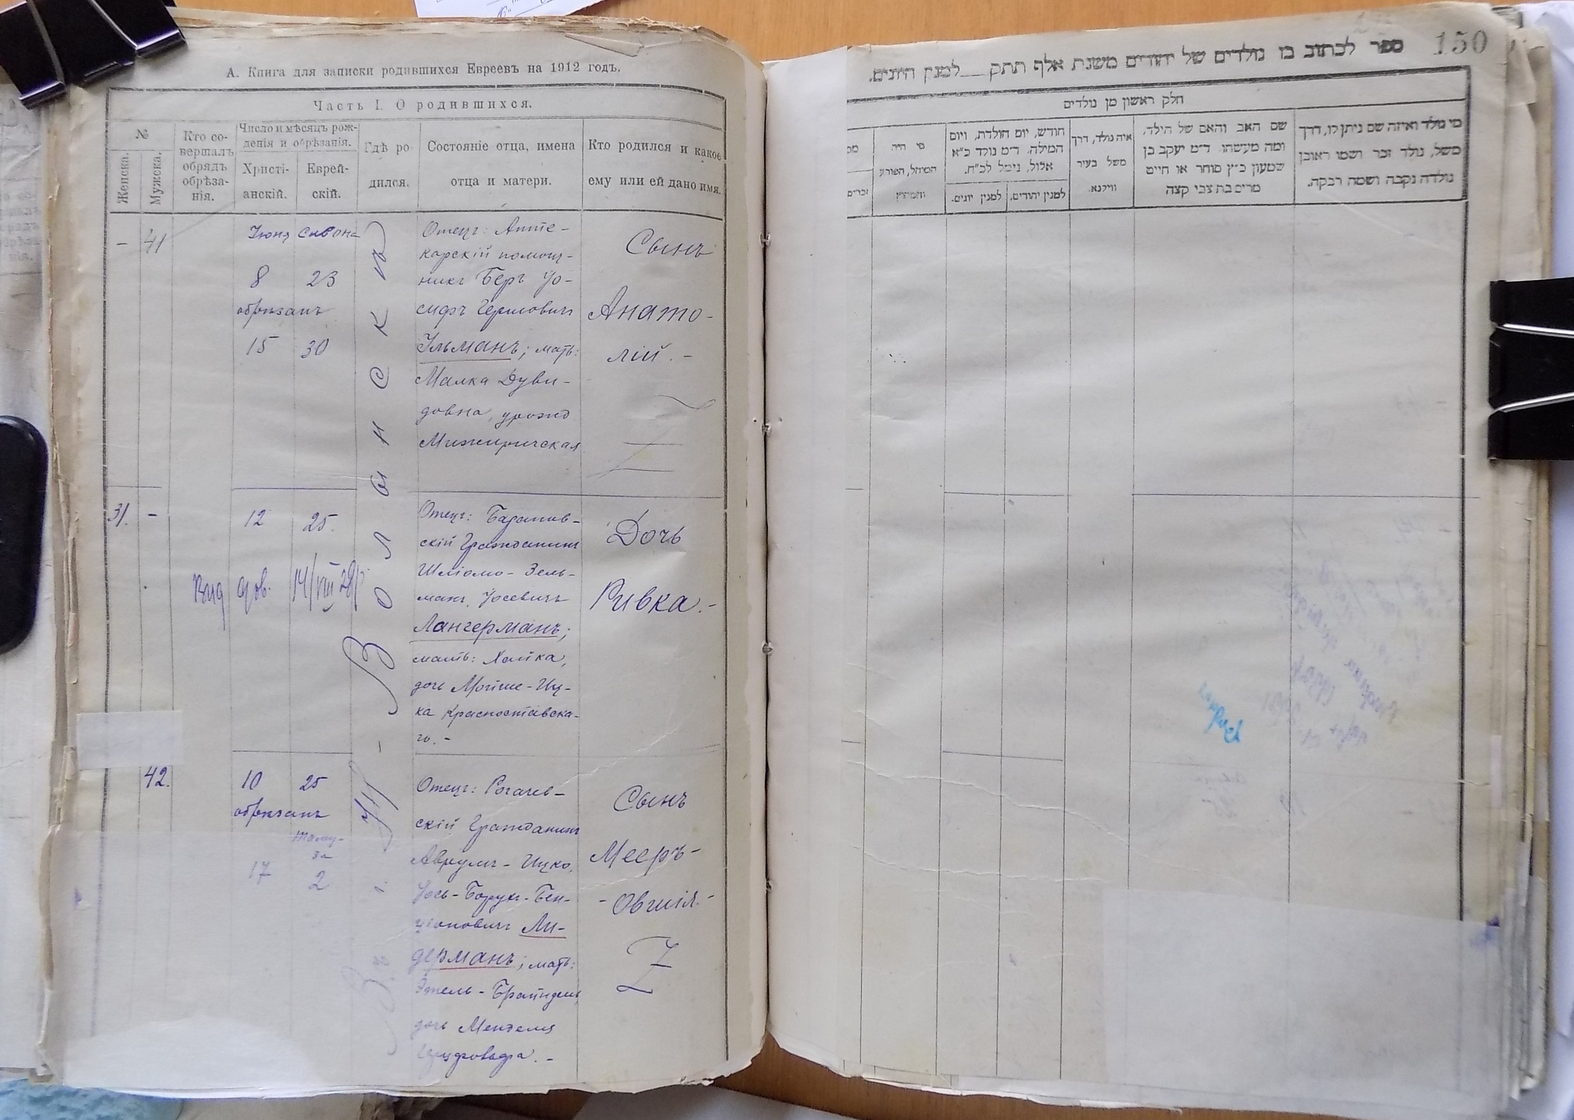 А. Книга для записки родившихся Евреевъ на 1912 годъ.
Часть I. О родившихся.
№
Женска.
Мужска.
Кто со-
вершалъ
обрядъ
обрѣза-
нія.
Число и мѣсяцъ рож-
денія и обрѣзанія.
Христі-
анскій.
Еврей-
скій.
Гдѣ ро
дился.
Состояніе отца, имена
отца и матери.
Кто родился и какое
ему или ей дано имя.
– 41
Іюня Сивона
8 23
обрѣзанъ
15 30
Отецъ: Апте-
карскій помощ-
никъ Беръ Іо-
сифъ Гершовичъ
Ульманъ; мать:
Малка Дуви-
довна, урожд
Мижиричская
Сынъ
Анато-
лій. –
31. –
12 25.
14/VIII 28
Отецъ:
скій Гражданинъ
Шліомо-Зель-
манъ Іосевичъ
Лангерманъ;
мать: Хайка,
дочь Мойше-Иц-
ка Красноставска-
го. –
Дочь
Ривка. –
42.
10 25
обрѣзанъ
Таму-
за
17 2
Отецъ: Рогачев-
скій Гражданинъ
Аврумъ-Ицко,
Іось-Борухъ-Бен-
ціоновичъ Ли-
дерманъ; мать:
дочь Менделя
Сынъ
Мееръ-
-Овшія. –
Волянскѣ
ספר לכתוב בו נולדים של יהודים משנת אלף תתק __ למנין היונים.
150
חלק ראשון מן נולדים
מי נולד ואיזה שם ניתן לו, דרך
משל, נולד זכר ושמו ראובן
נולדה נקבה ושמה רבקה.
שם האב והאם של הילד,
ומה מעשהו ד״מ יעקב בן
שמעון כ״ץ סוחר או חייט
מרים בת צבי קצה
איה נולד, דרך
משל בעיר
ווילנא
חודש, יום הולדת, ויום
המילה. ד״מ נולד כ״א
אלול, נימל לכ״ח.
למנין יהודים.
למנין יונים.
מי היה
המוהל, הפורע
והמוצץ